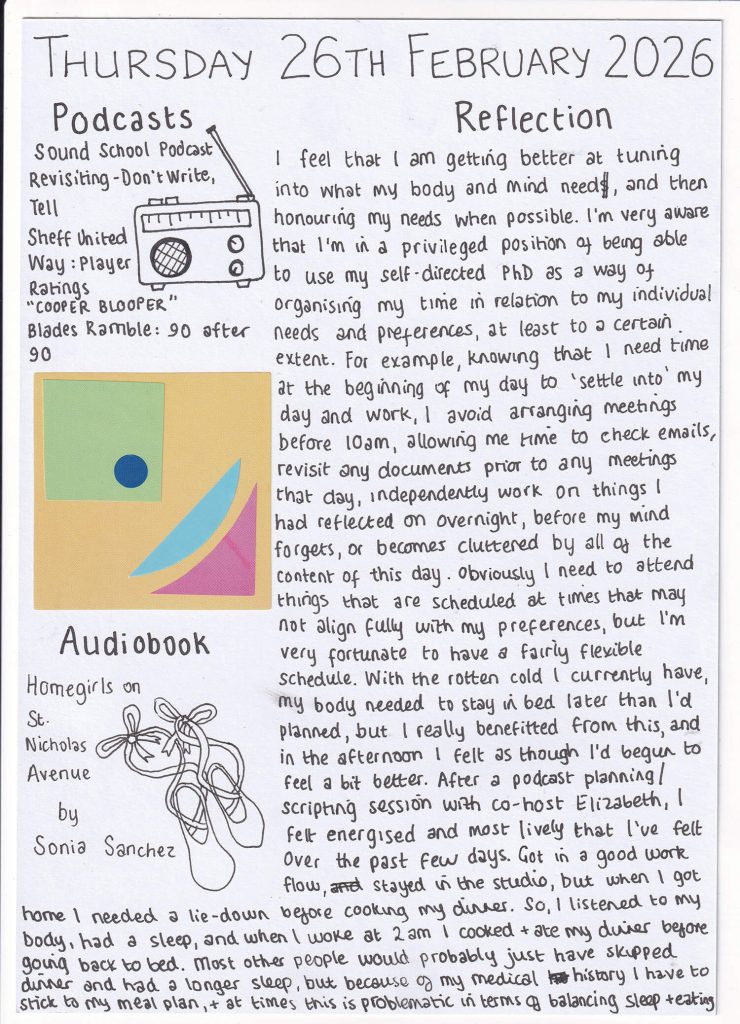 THURSDAY 26TH FEBRUARY 2026
Podcasts
Sound School Podcast
Revisiting - Don't Write,
Tell
Sheff United
Way : Player
Ratings
"COOPER BLOOPER"
Blades Ramble: 90 after
90
Audiobook
Homegirls on
St.
Nicholas
Avenue
by
Sonia Sanchez
Reflection
I feel that I am getting better at tuning
into what my body and mind need, and then
honouring my needs when possible. I'm very aware
that I'm in a privileged position of being able
to use my self-directed PhD as a way of
organising my time in relation to my individual
needs and preferences, at least to a certain
extent. For example, knowing that I need time
at the beginning of my day to 'settle into' my
day and work, I avoid arranging meetings
before 10am, allowing me time to check emails,
revisit any documents prior to any meetings
that day, independently work on things I
had reflected on overnight, before my mind
forgets, or becomes cluttered by all of the
content of this day. Obviously I need to attend
things that are scheduled at times that may
not align fully with my preferences, but I'm
very fortunate to have a fairly flexible
schedule. With the rotten cold I currently have,
my body needed to stay in bed later than I'd
planned, but I really benefitted from this, and
in the afternoon I felt as though I'd begun to
feel a bit better. After a podcast planning/
scripting session with co-host Elizabeth, I
felt energised and most lively that I've felt
over the past few days. Got in a good work
flow, and stayed in the studio, but when I got
home I needed a lie-down before cooking my dinner. So, I listened to my
body, had a sleep, and when I woke at 2am I cooked + ate my dinner before
going back to bed. Most other people would probably just have skipped
dinner and had a longer sleep, but because of my medical history I have to
stick to my meal plan, + at times this is problematic in terms of balancing sleep + eating